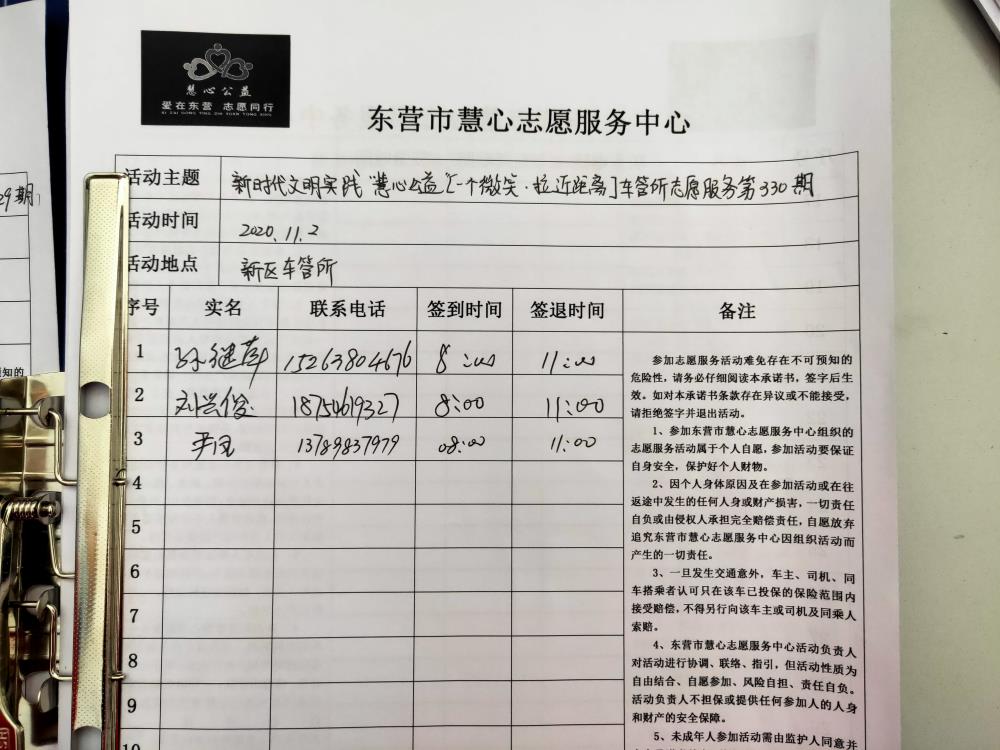 慧心公益
爱在东营 志愿同行
AI ZAI DONG YING ZHI YUAN TONG XING
东营市慧心志愿服务中心
29期
活动主题 新时代文明实践"慧心公益[一个微笑·拉近距离]车管所志愿服务第330期
活动时间 2020.11.2
活动地点 新区车管所
序号 实名 联系电话 签到时间 签退时间 备注
1 孙继 15263804676 8:00 11:00
2 刘兴俊 18754619327 8:00 11:00
3 13789837979 08:00 11:00
4
5
6
7
8
9
10
参加志愿服务活动难免存在不可预知的
危险性，请务必仔细阅读本承诺书，签字后生
效。如对本承诺书条款存在异议或不能接受，
请拒绝签字并退出活动。
1、参加东营市慧心志愿服务中心组织的
志愿服务活动属于个人自愿，参加活动要保证
自身安全，保护好个人财物。
2、因个人身体原因及在参加活动或在往
返途中发生的任何人身或财产损害，一切责任
自负或由侵权人承担完全赔偿责任，自愿放弃
追究东营市慧心志愿服务中心因组织活动而
产生的一切责任。
3、一旦发生交通意外，车主、司机、同
车搭乘者认可只在该车已投保的保险范围内
接受赔偿，不得另行向该车主或司机及同乘人
索赔。
4、东营市慧心志愿服务中心活动负责人
对活动进行协调、联络、指引，但活动性质为
自由结合、自愿参加、风险自担、责任自负。
活动负责人不担保或提供任何参加人的人身
和财产的安全保障。
5、未成年人参加活动需由监护人同意并
知的